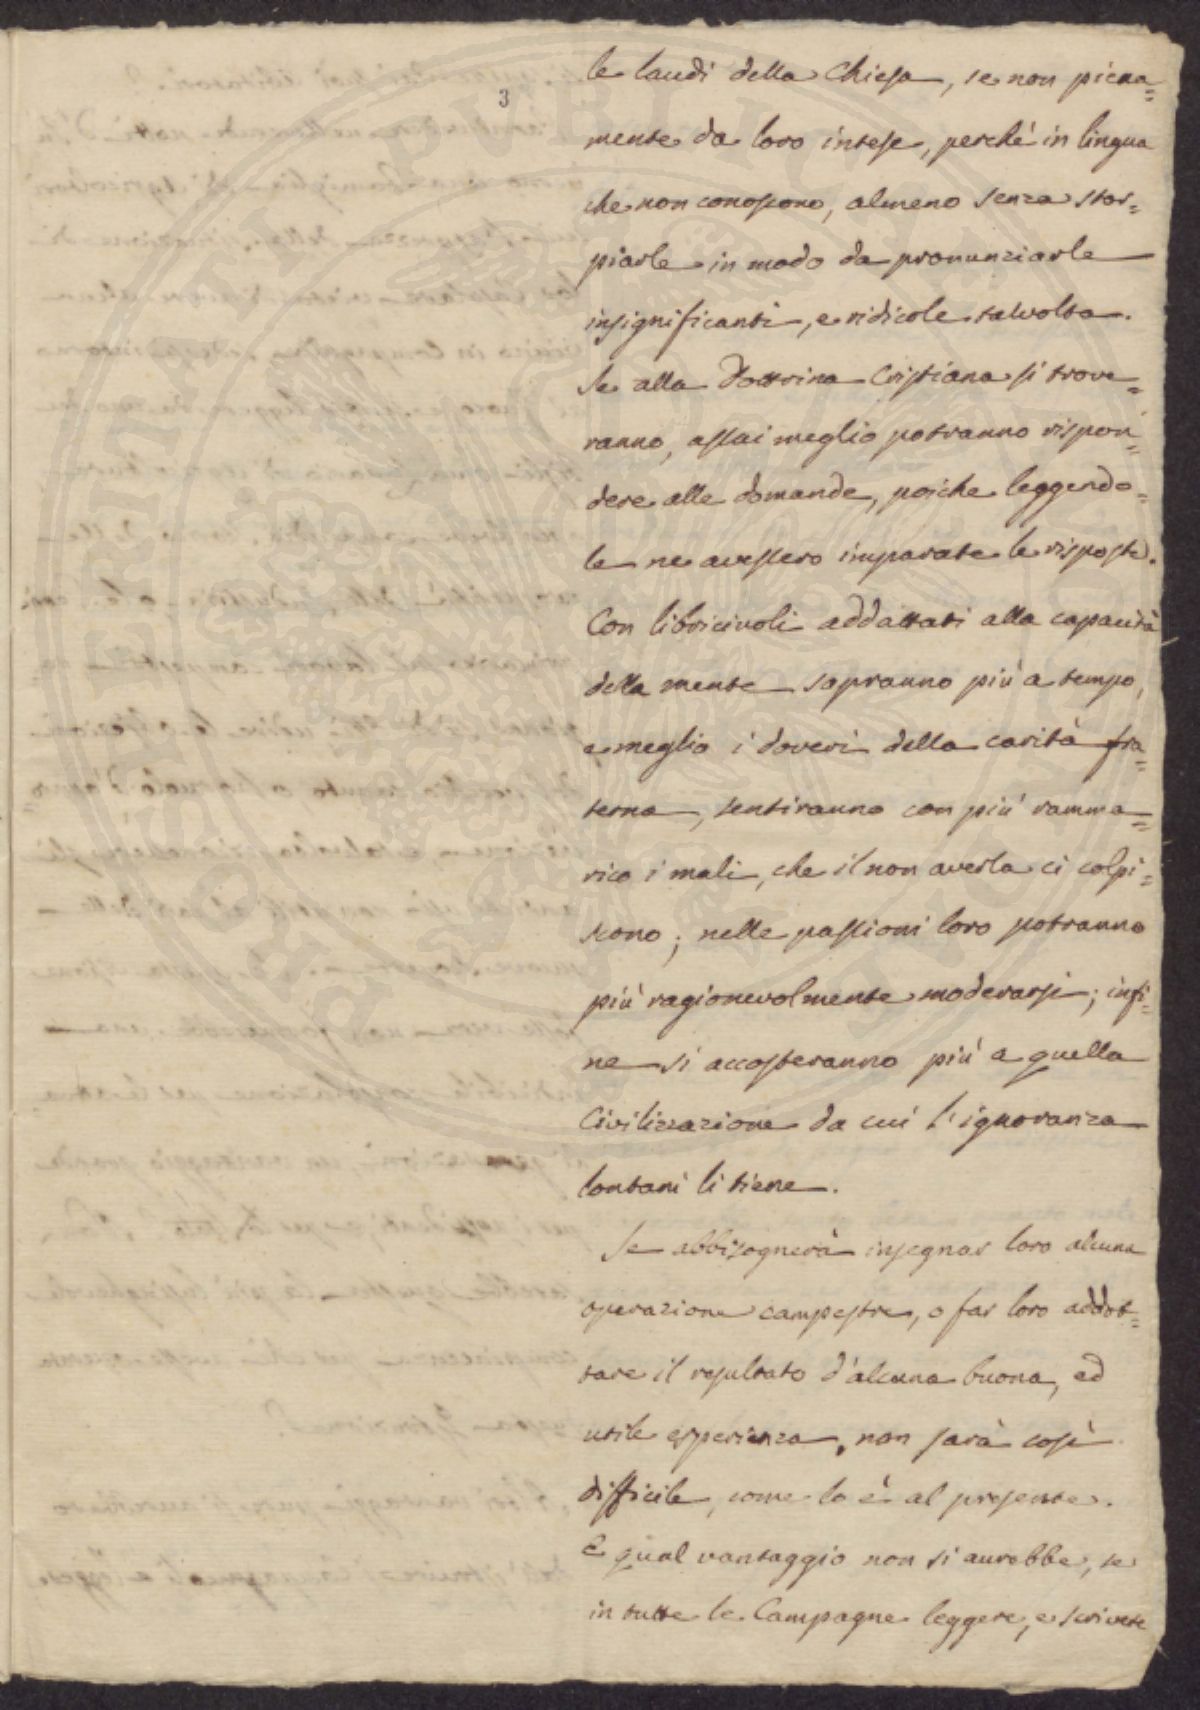 3
le laudi della Chiesa, se non piena=
mente da loro intese, perchè in lingua
che non conoscono, almeno senza stor=
piarle in modo da pronunziarle
insignificanti, e ridicole talvolta.
Se alla Dottrina Cristiana si trove=
ranno, assai meglio potranno rispon=
dere alle domande, poiche leggendo=
le ne avessero imparate le risposte.
Con libricivoli addattati alla capacità
della mente sapranno più a tempo,
e meglio i doveri della carità fra=
terna, sentiranno con più ramma=
rico i mali, che il non averla ci colpi=
scono; nelle passioni loro potranno
più ragionevolmente moderarsi; infi=
ne si accosteranno più a quella
Civilizzazione da cui l'ignoranza
lontani li tiene.
Se abbisognerà insegnar loro alcuna
operazione campestre, o far loro addot=
tare il resultato d'alcuna buona, ed
utile esperienza, non sarà così
difficile, come lo è al presente.
E qual vantaggio non si aurebbe, se
in tutte le Campagne leggere, e scrivere